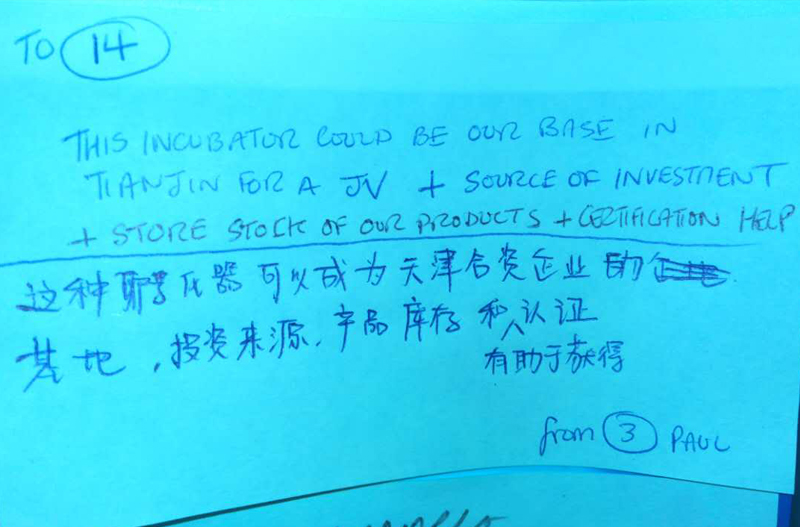 TO 14
THIS INCUBATOR COULD BE OUR BASE IN
TIANJIN FOR A JV + SOURCE OF INVESTMENT
+ STORE STOCK OF OUR PRODUCTS + CERTIFICATION HELP
这种孵化器可以成为天津合资企业的
基地，投资来源，产品库存和认证
有助于获得
from 3 PAUL